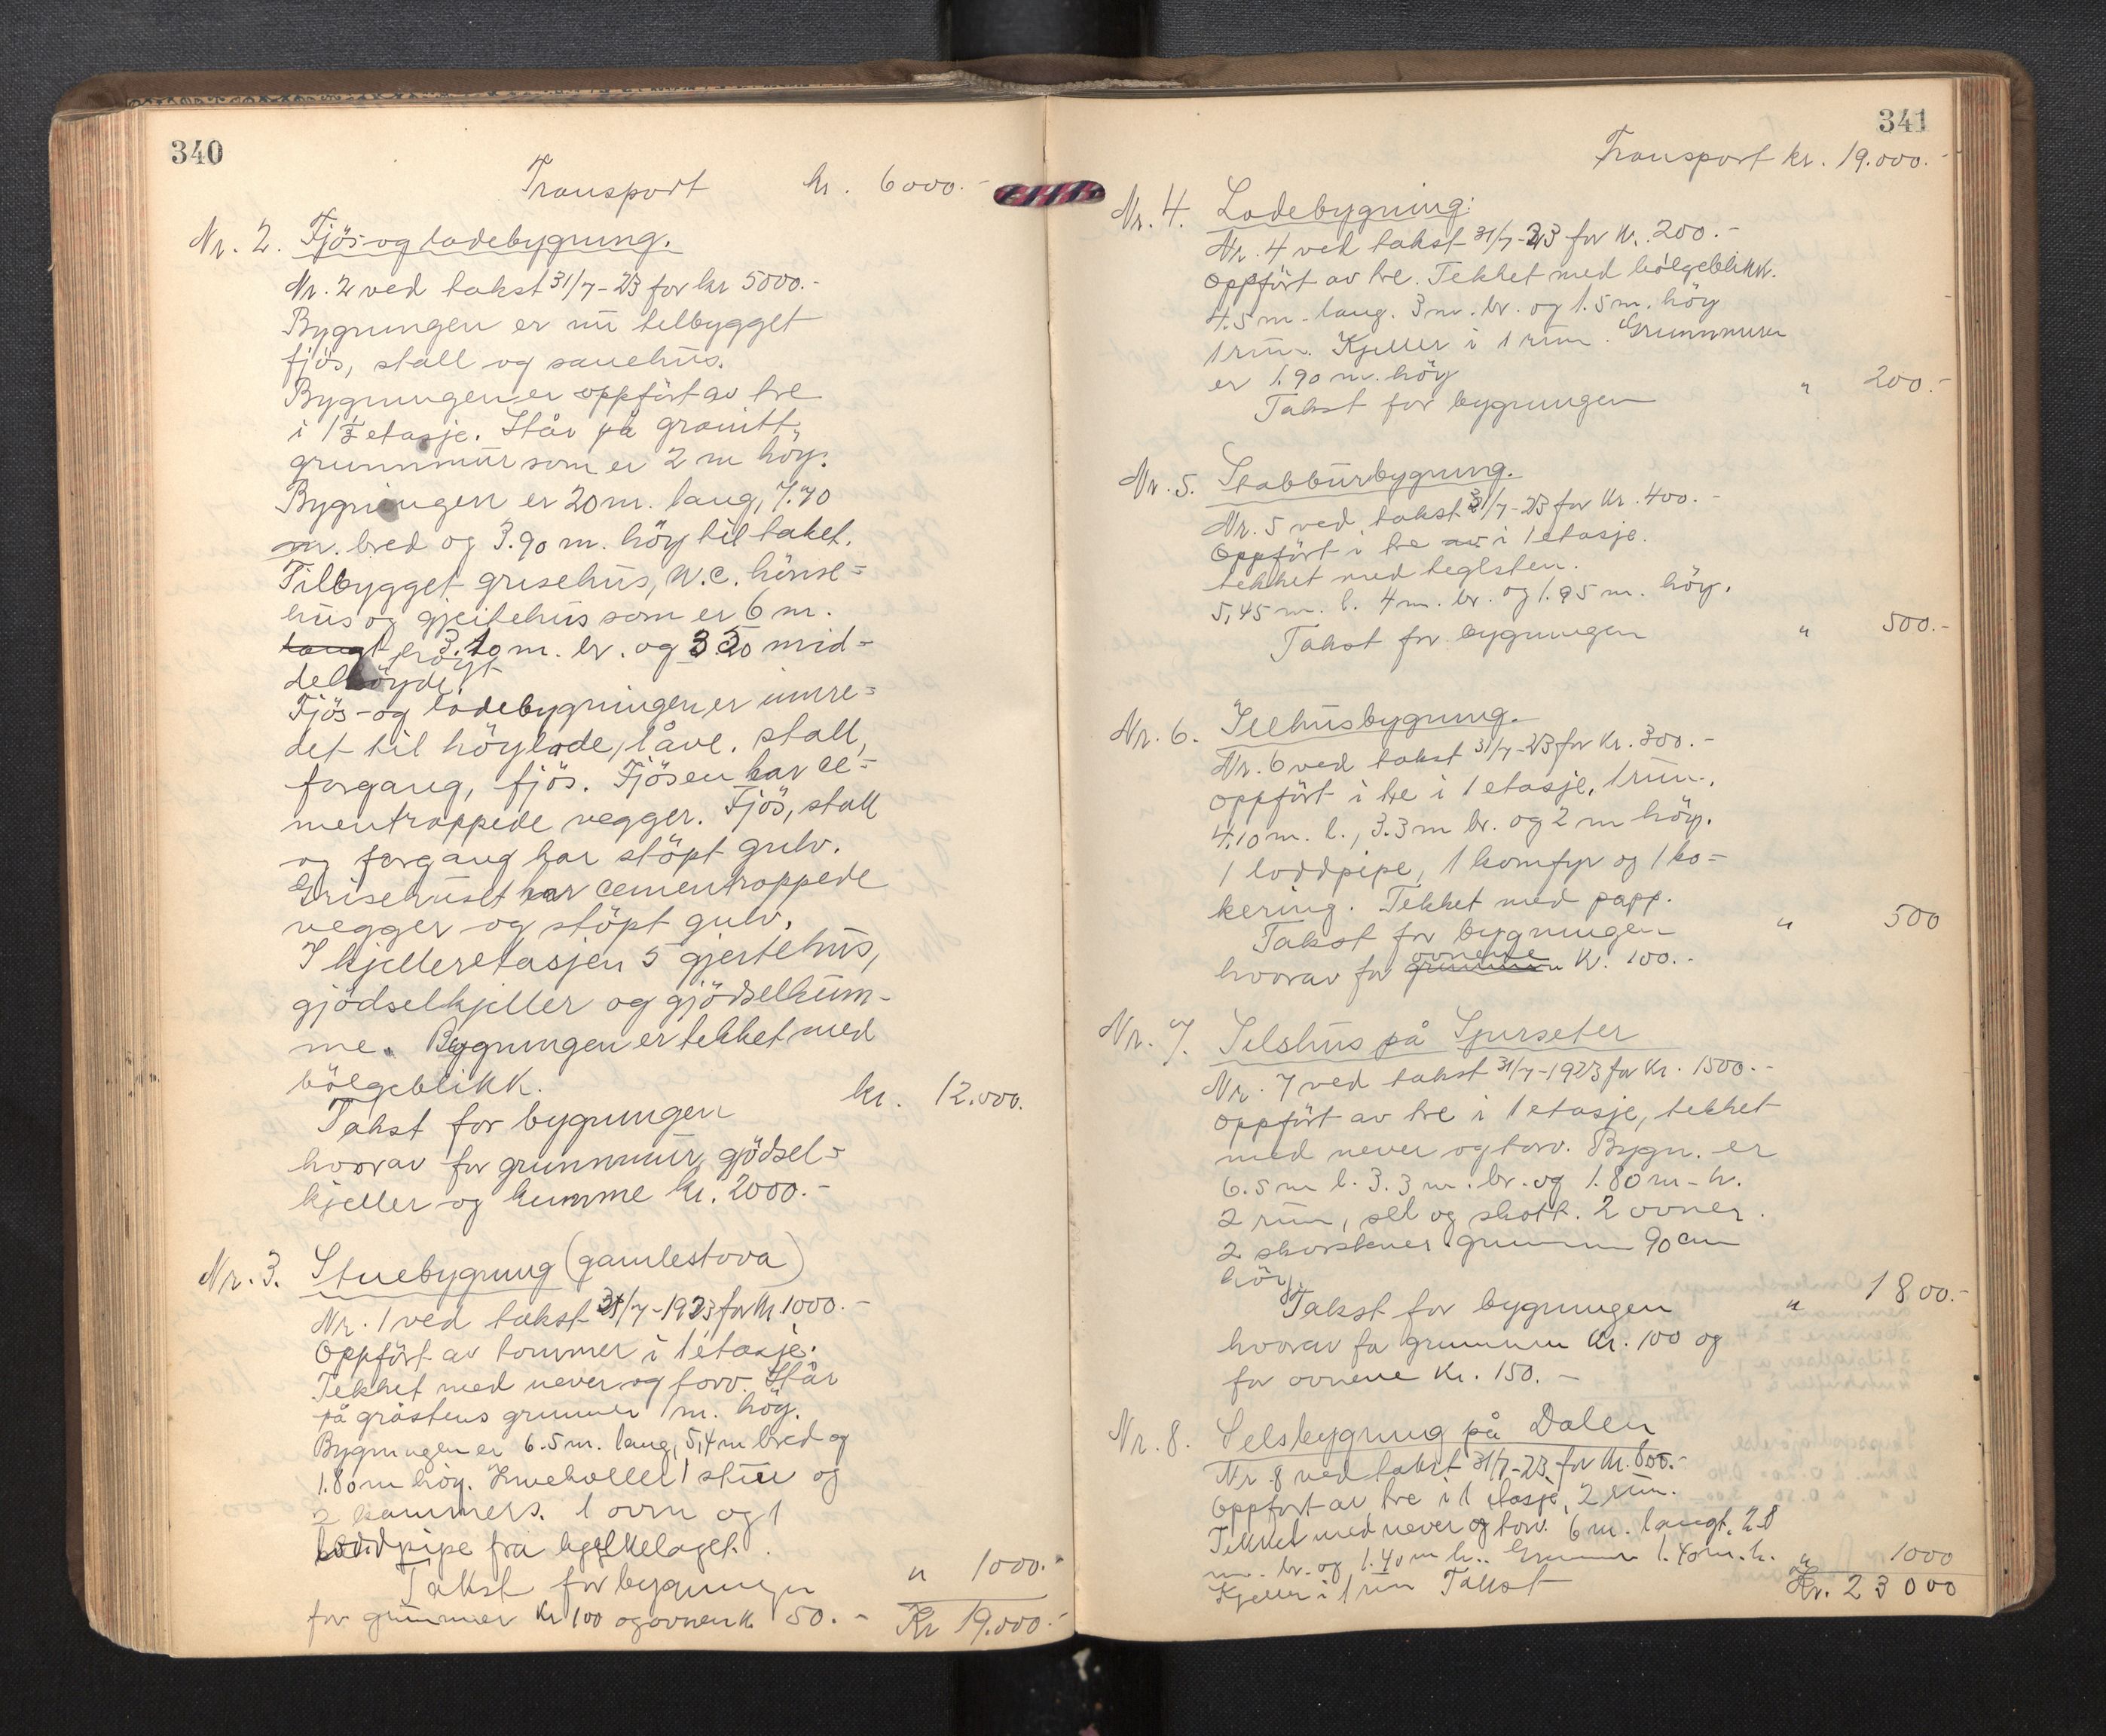 340
Transport kr. 6000.-
Nr. 2. Fjös- og ladebygning.
Nr. 2 ved takst 31/7-23 for kr 5000.-
Bygningen er nu tilbygget
fjös, stall og sauehus.
Bygningen er oppfört av tre
i 1 1/2 etasje. Står på granitt
grunnmur som er 2 m höy.
Bygningen er 20 m. lang, 7.70
m. bred og 3.90 m. höy til taket.
Tilbygget grisehus, W.C. hönse=
hus og gjeitehus som er 6 m.
langt 3.10 m. br. og 3.20 mid=
delhöyde.
Fjös- og ladebygningen er innre=
det til höylade, låve. stall,
forgang, fjös. Fjösen har ce=
mentrappede vegger. Fjös, stall
og forgang har stöpt gulv.
Grisehuset har cementrappede
vegger og stöpt gulv.
I kjelleretasjen 5 gjeitehus,
gjödselkjeller og gjödselkum-
me. Bygningen er tekket med
bölgeblikk.
Takst for bygningen kr. 12.000.
hvorav for grunnmur, gjödsel=
kjeller og kumme kr. 2000.-
Nr. 3. Stuebygning (gamlestova)
Nr. 1 ved takst 31/7-1923 for kr 1000.-
Oppfört av tømmer i 1 etasje.
Tekket med never og torv. Står
på gråstens grunnmur 1 m. höy.
Bygningen er 6.5 m. lang, 5,4 m bred og
1.80 m höy. Inneholler 1 stue og
2 kammers. 1 ovn og 1
loddpipe fra
Takst for bygningen " 1000.-
for grunnmur kr 100 og ovnen k. 50.- Kr 19.000.-
341
Transport kr. 19.000.-
Nr. 4. Ladebygning:
Nr. 4 ved takst 31/7-23 for kr. 200.-
Oppfört av tre. Tekket med bölgeblikk.
4.5 m. lang. 3 m. br. og 1.5 m. höy
1 rum. Kjeller i 1 rum. Grunnmuren
er 1.90 m. höy
Takst for bygningen " 200.-
Nr. 5. Stabburbygning.
Nr. 5 ved takst 31/7-23 for kr. 400.-
Oppfört i tre av i 1 etasje.
tekket med teglsten.
5,45 m. l. 4 m. br. og 1.95 m. höy.
Takst for bygningen " 500.-
Nr. 6. Ildhusbygning.
Nr. 6 ved takst 31/7-23 for kr. 300.-
Oppfört i tre i 1 etasje, 1 rum.
4.10 m. l., 3.3 m br. og 2 m höy.
1 loddpipe, 1 komfyr og 1 ko=
kering. Tekket med papp.
Takst for bygningen " 500
hvorav for grunnmuren ovnene kr. 100.-
Nr. 7. Selshus på Spurseter
Nr. 7 ved takst 31/7-1923 for kr. 1500.-
Oppfört av tre i 1 etasje, tekket
med never og torv. Bygn. er
6.5 m l. 3.3 m. br. og 1.80 m h.
2 rum, sel og skott. 2 ovner.
2 skorstener. grunnmur 90 cm
höy
Takst for bygningen " 1800.-
hvorav for grunnmur kr. 100 og
for ovnene kr. 150.-
Nr. 8. Selsbygning på Dalen
Nr 8 ved takst 31/7-23 for kr. 800.-
Oppfört av tre i 1 etasje, 2 rum.
Tekket med never og torv. 6 m. langt, 2.8
m. br. og 1.40 m h.. Grunnmur 1.40 m. h.
Kjeller i 1 rum Takst " 1000
Kr. 23000